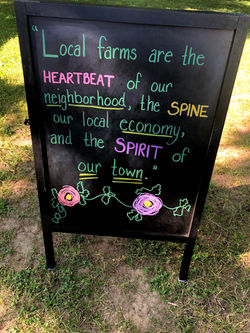 "Local farms are the
HEARTBEAT of our
neighborhood, the SPINE
our local economy,
and the SPIRIT of
our town."